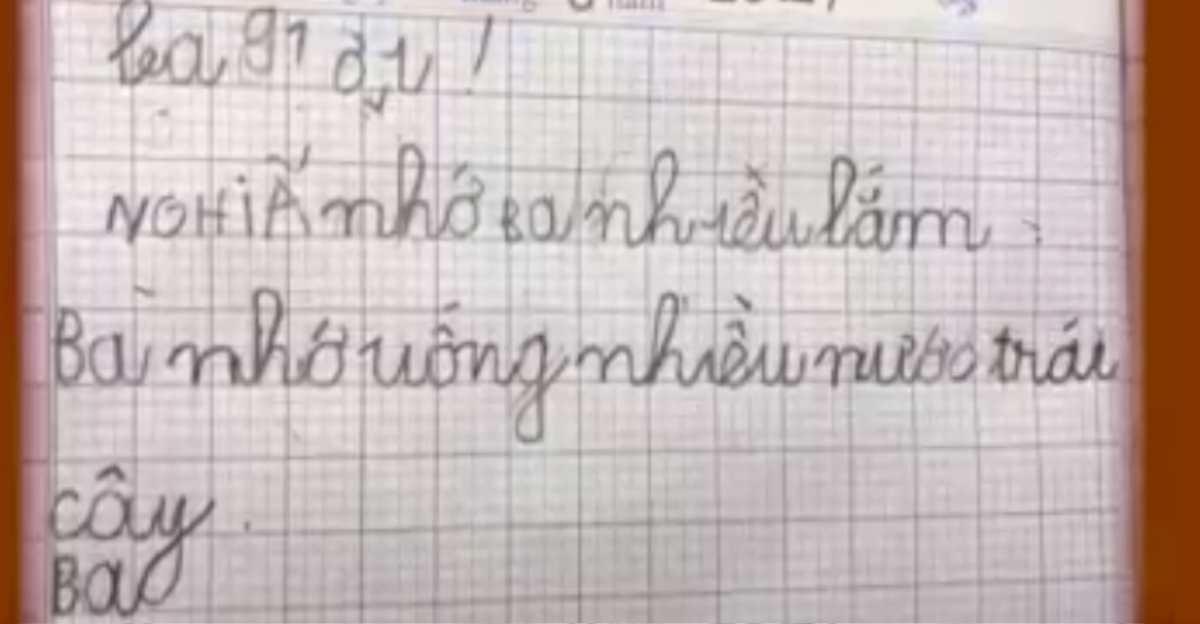 năm
NGHIÃ nhớ Ba nhiều lắm.
Bà nhớ uống nhiều nước trái
cây.
Ba